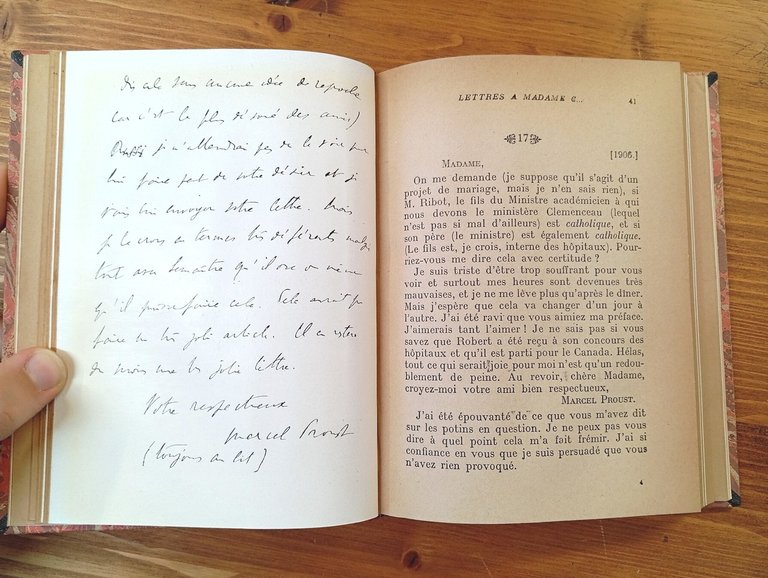 dis cela sans aucune idée de reproche
car c'est le plus dévoué des amis)
je n'attendrai pas de le voir pour
lui faire part de votre désir et je
vais lui envoyer votre lettre. Mais
je le crois en termes très différents
tout avec Lemaître qu'il ose ou même
qu'il puisse faire cela. Cela aurait pu
faire un très joli article. Il en restera
du moins une très jolie lettre.
Votre respectueux
Marcel Proust
(toujours au lit)
LETTRES A MADAME C...
41
17
[1906.]
MADAME,
On me demande (je suppose qu'il s'agit d'un
projet de mariage, mais je n'en sais rien), si
M. Ribot, le fils du Ministre académicien à qui
nous devons le ministère Clemenceau (lequel
n'est pas si mal d'ailleurs) est catholique, et si
son père (le ministre) est également catholique.
(Le fils est, je crois, interne des hôpitaux). Pour-
riez-vous me dire cela avec certitude ?
Je suis triste d'être trop souffrant pour vous
voir et surtout mes heures sont devenues très
mauvaises, et je ne me lève plus qu'après le dîner.
Mais j'espère que cela va changer d'un jour à
l'autre. J'ai été ravi que vous aimiez ma préface.
J'aimerais tant l'aimer ! Je ne sais pas si vous
savez que Robert a été reçu à son concours des
hôpitaux et qu'il est parti pour le Canada. Hélas,
tout ce qui serait joie pour moi n'est qu'un redou-
blement de peine. Au revoir, chère Madame,
croyez-moi votre ami bien respectueux,
MARCEL PROUST.
J'ai été épouvanté de ce que vous m'avez dit
sur les potins en question. Je ne peux pas vous
dire à quel point cela m'a fait frémir. J'ai si
confiance en vous que je suis persuadé que vous
n'avez rien provoqué.
4